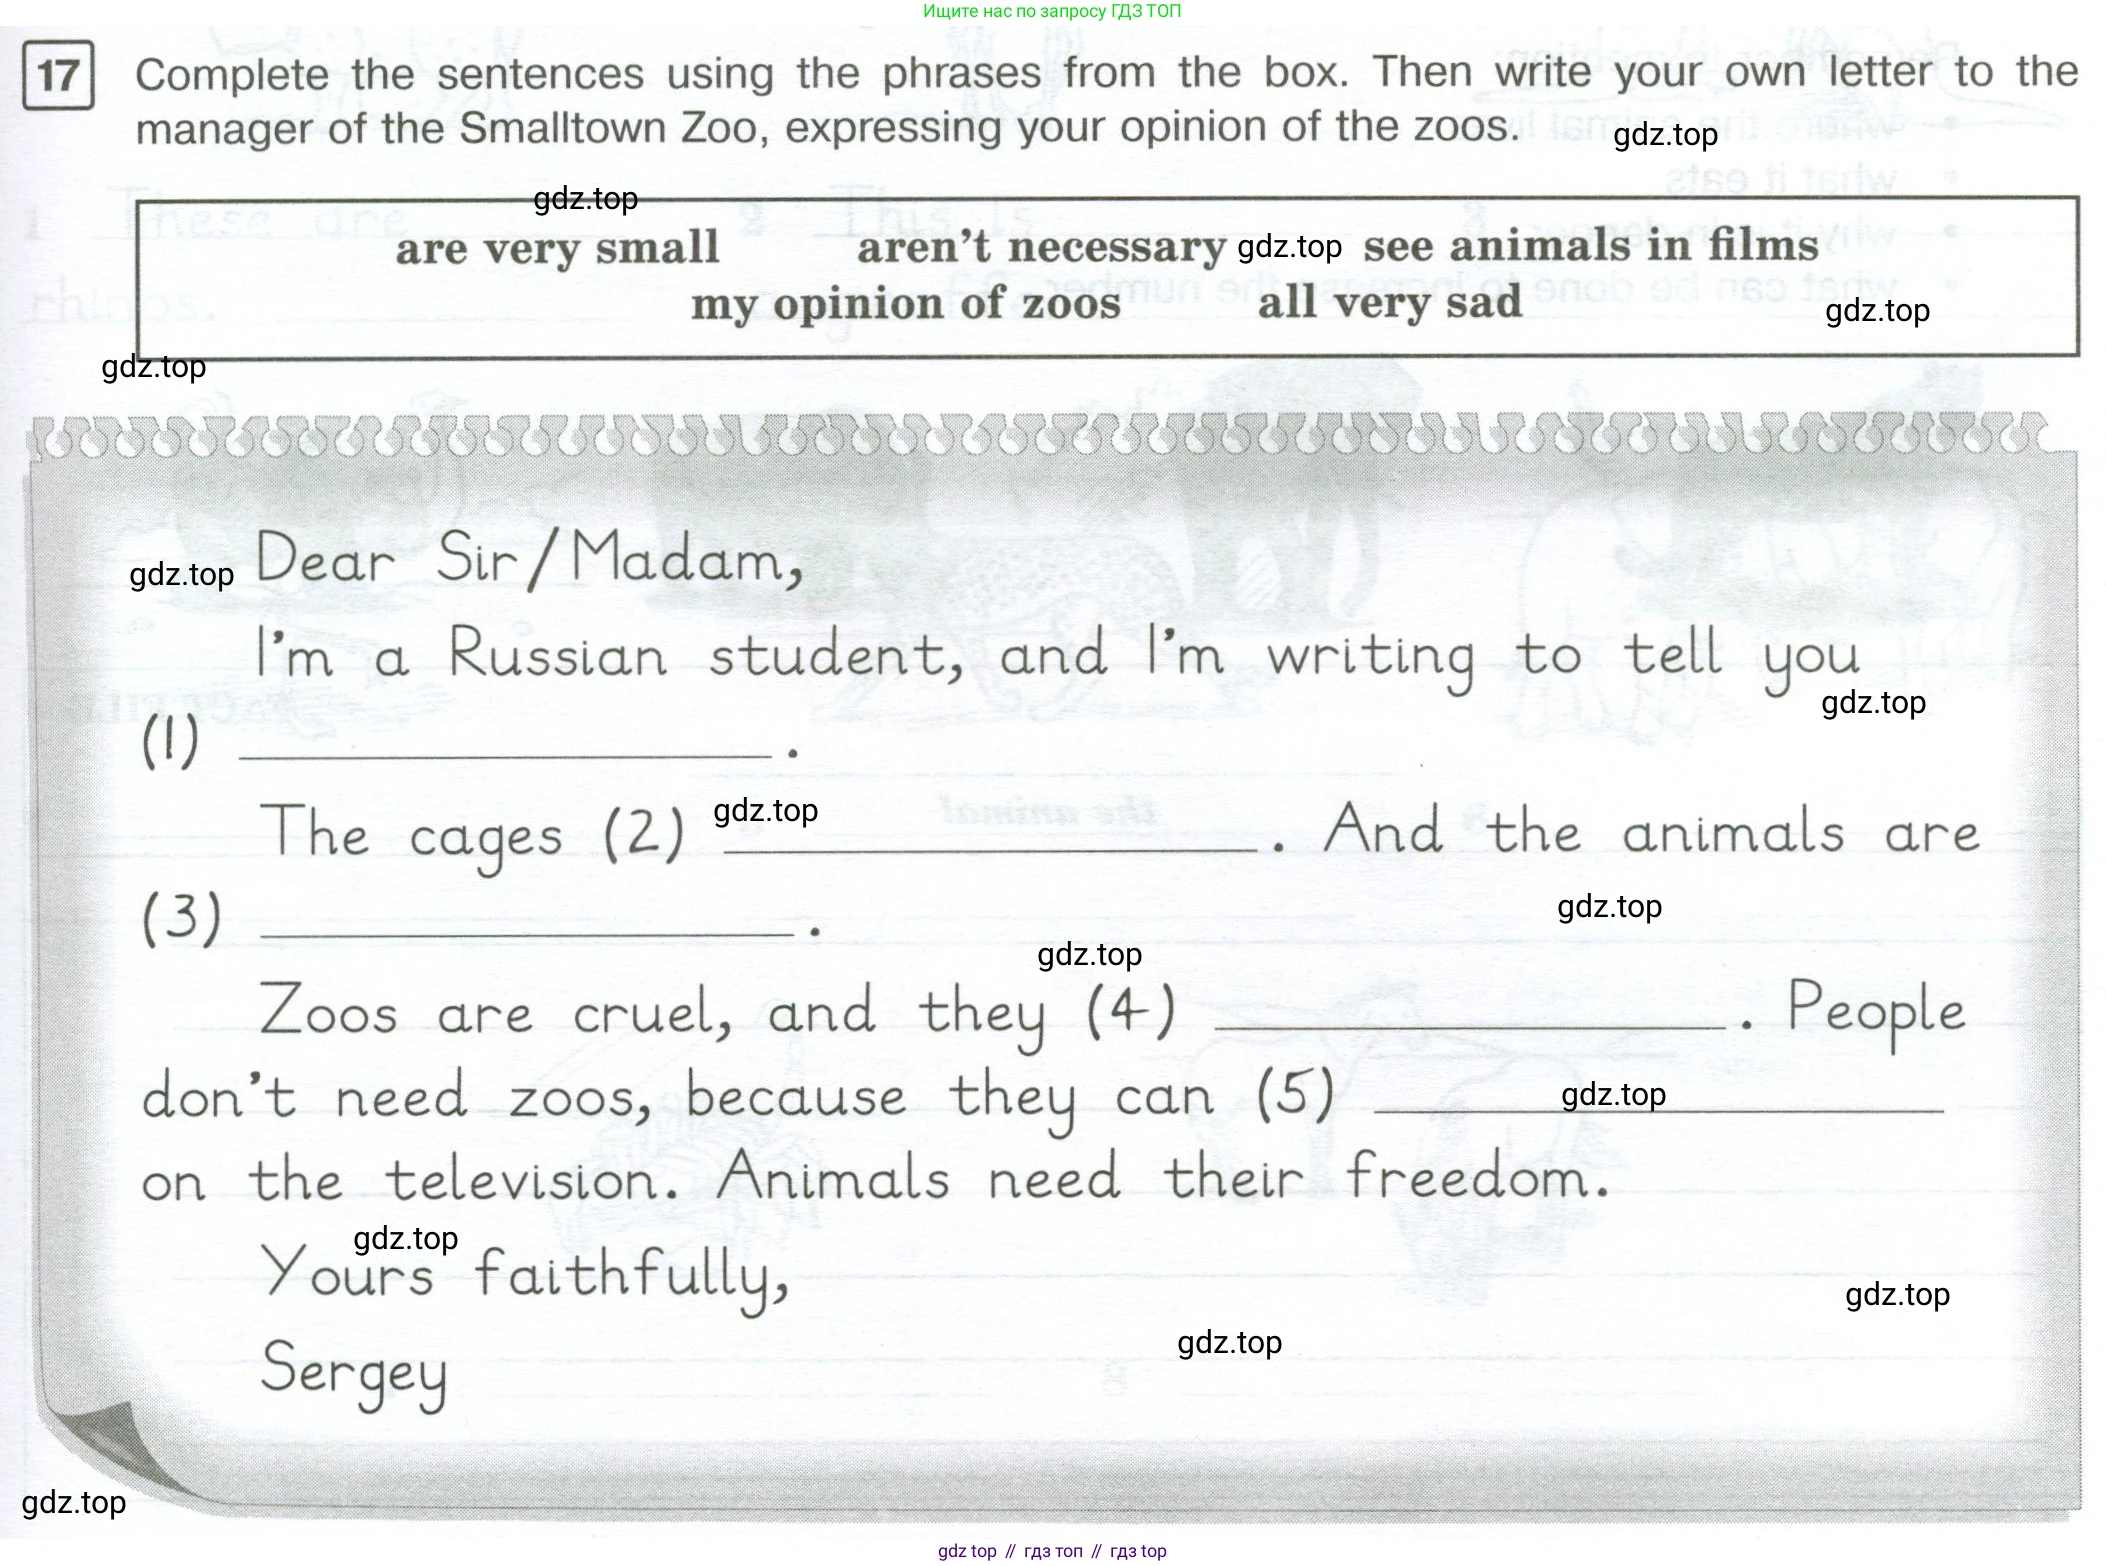 Ищите нас по запросу ГДЗ ТОП
17 Complete the sentences using the phrases from the box. Then write your own letter to the
manager of the Smalltown Zoo, expressing your opinion of the zoos. gdz.top
gdz.top
are very small aren't necessary gdz.top see animals in films
my opinion of zoos all very sad gdz.top
gdz.top
gdz.top Dear Sir/Madam,
I'm a Russian student, and I'm writing to tell you
gdz.top
(1) .
The cages (2) gdz.top . And the animals are
(3) . gdz.top
gdz.top
Zoos are cruel, and they (4) . People
don't need zoos, because they can (5) gdz.top
on the television. Animals need their freedom.
gdz.top
Yours faithfully,
gdz.top
gdz.top
Sergey
gdz.top
gdz top // гдз топ // гдз top